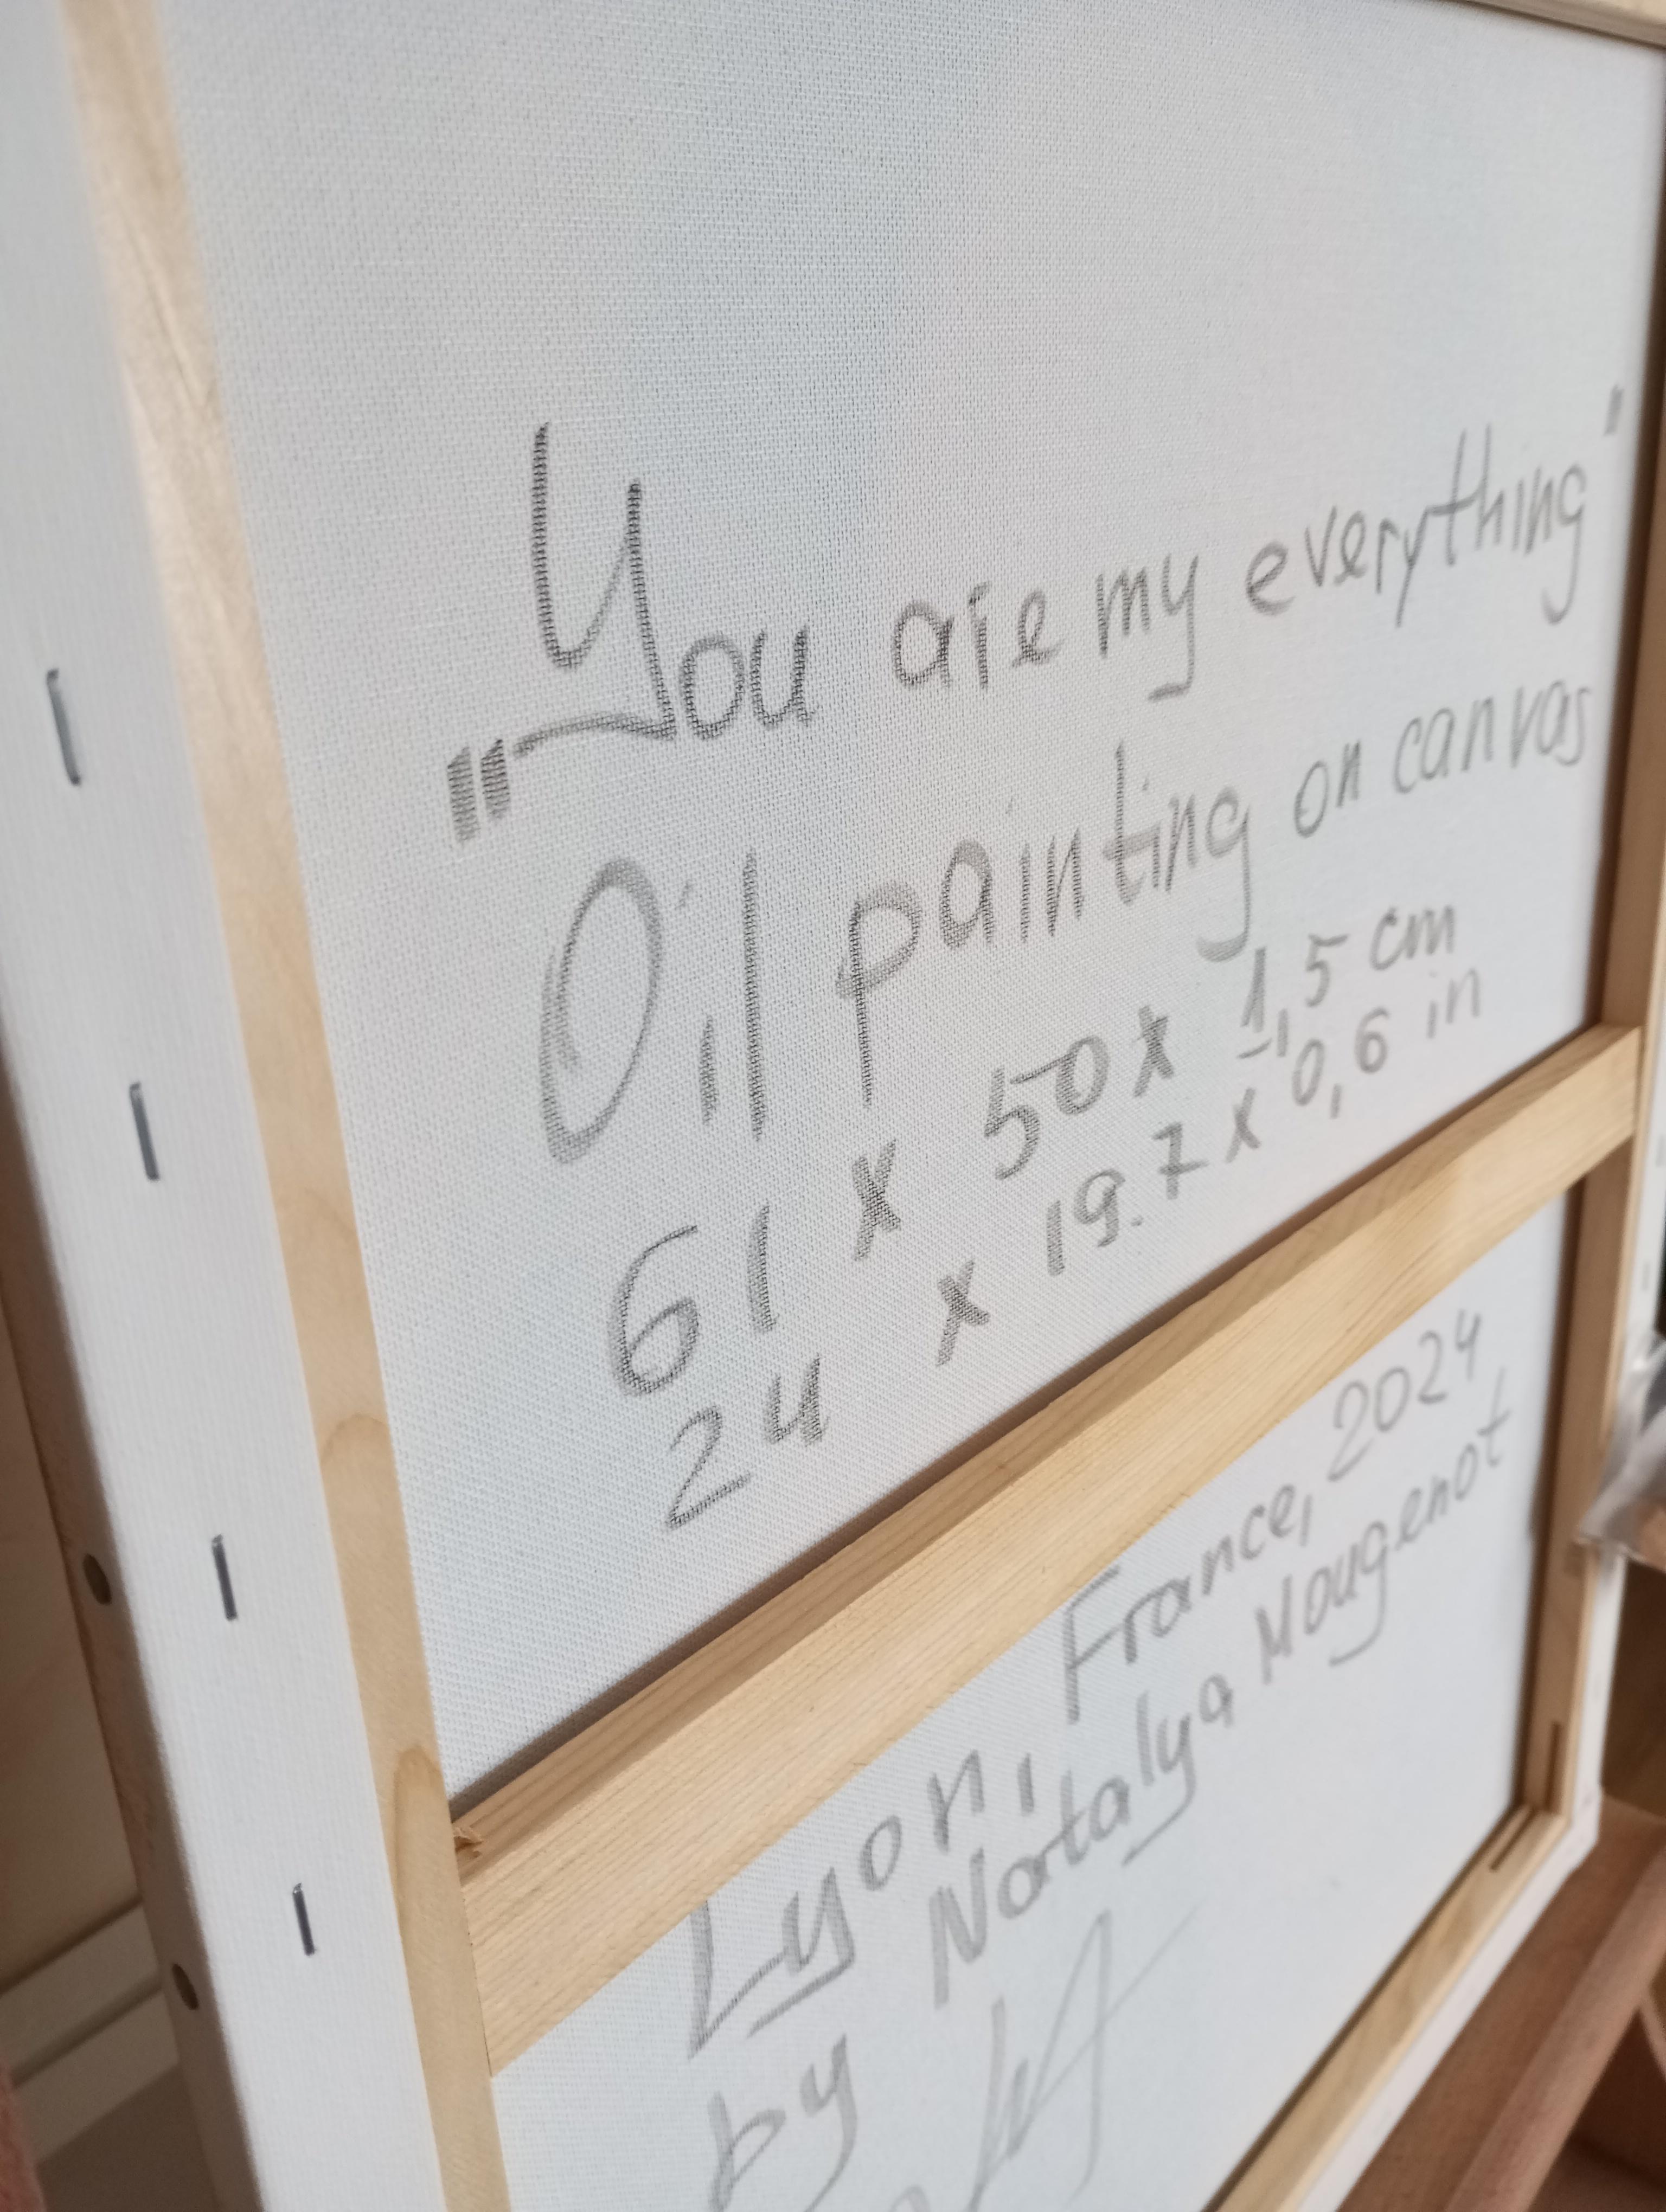 "You are my everything"
Oil painting on canvas
61 x 50 x 1,5 cm
24 x 19.7 x 0,6 in
Lyon, France, 2024
by Natalya Mougenot